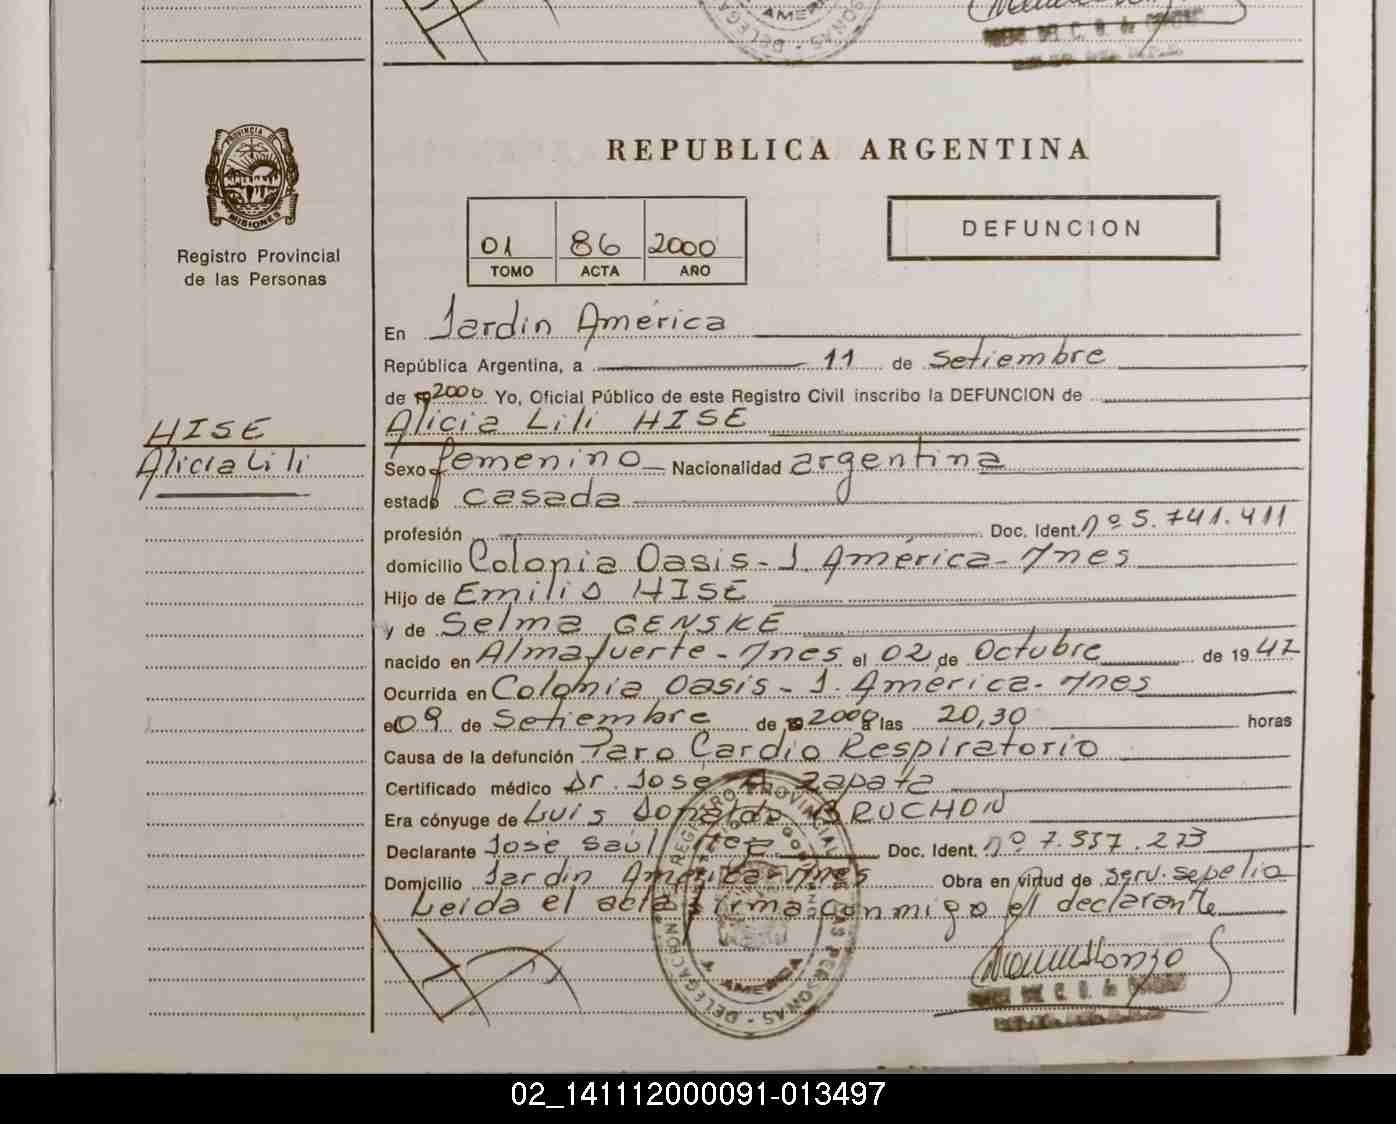 REPUBLICA ARGENTINA
PROVINCIA DE
MISIONES
Registro Provincial
de las Personas
01 86 2000
TOMO ACTA AÑO
DEFUNCION
En Jardin América
República Argentina, a 11 de Setiembre
de 2000 Yo, Oficial Público de este Registro Civil inscribo la DEFUNCION de
HISE
Alicia Lili
Alicia Lili HISE
Sexo femenino Nacionalidad argentina
estado casada
profesión Doc. Ident. nº 5.741.411
domicilio Colonia Oasis - J. América - Mnes
Hijo de Emilio HISE
y de Selma GENSKE
nacido en Almafuerte - Mnes el 02 de Octubre de 1947
Ocurrida en Colonia Oasis - J. América - Mnes
el 09 de Setiembre de 2000 a las 20,30 horas
Causa de la defunción Paro Cardio Respiratorio
Certificado médico Dr. José A. Zapata
Era cónyuge de Luis Donaldo BRUCHON
Declarante José Saúl Doc. Ident. nº 7.337.273
Domicilio Jardin América - Mnes Obra en virtud de serv. sepelio
Leida el acta firma conmigo el declarante
DELEGACION REGISTRO PROVINCIAL DE LAS PERSONAS
AMERICA
02_141112000091-013497